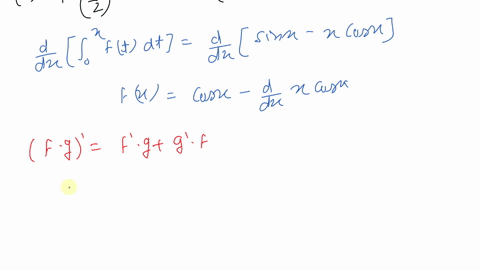 d/dx [∫₀ˣ f(t) dt] = d/dx [sinx - x cosx]
f(x) = cosx - d/dx x cosx
(f·g)' = f'·g + g'·f